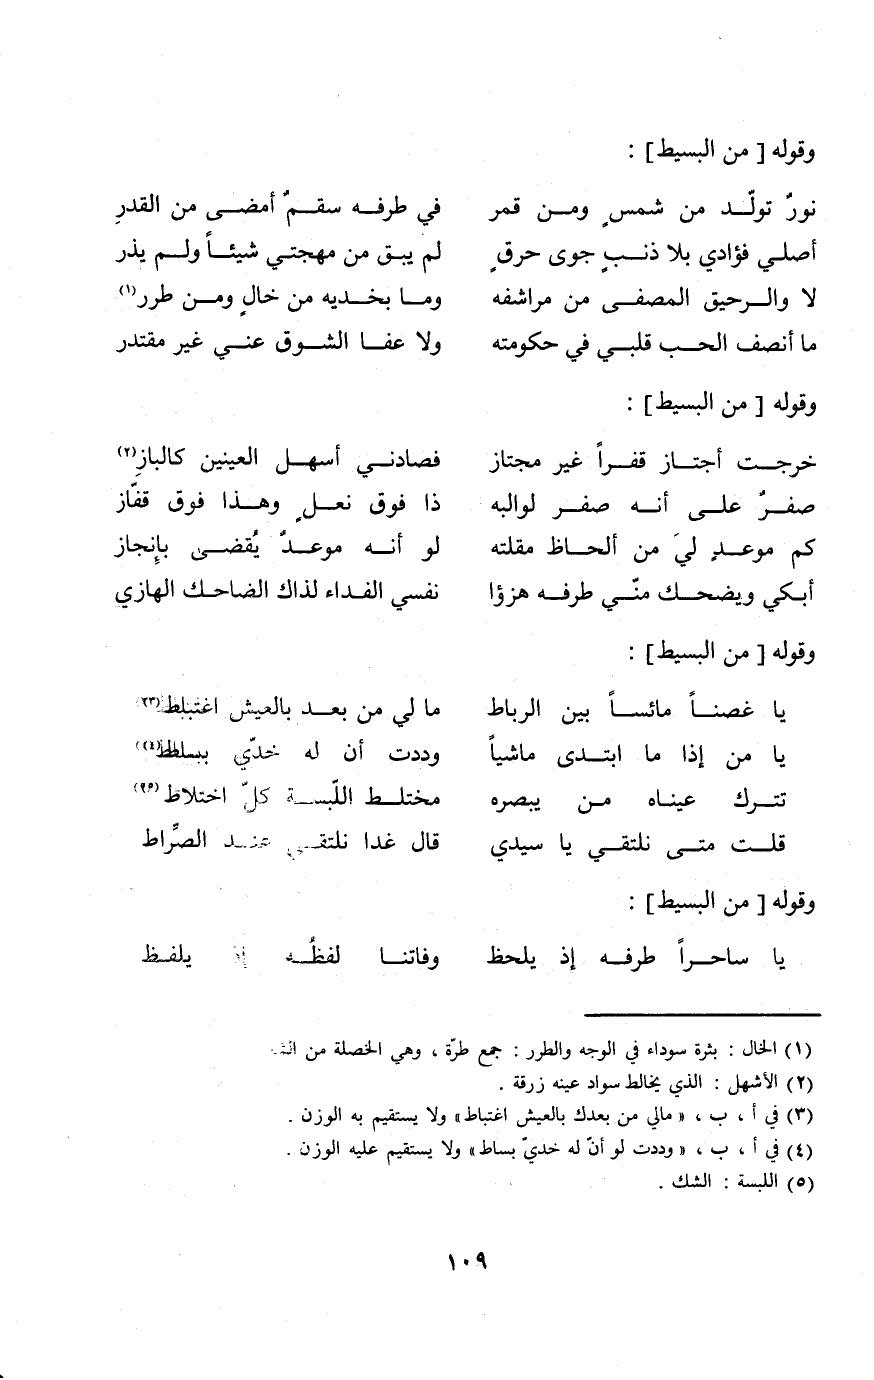 وقوله [ من البسيط ] :
نورٌ تولّد من شمسٍ ومن قمر في طرفه سقمٌ أمضى من القدرِ
أصلي فؤادي بلا ذنبٍ جوى حرقٍ لم يبق من مهجتي شيئاً ولم يذر
لا والرحيق المصفى من مراشفه وما بخديه من خالٍ ومن طرر(١)
ما أنصف الحب قلبي في حكومته ولا عفا الشوق عني غير مقتدر
وقوله [ من البسيط ] :
خرجت أجتاز قفراً غير مجتاز فصادني أسهل العينين كالبازِ(٢)
صفرٌ على أنه صفر لوالبه ذا فوق نعلٍ وهذا فوق قفّاز
كم موعدٍ ليَ من ألحاظ مقلته لو أنه موعدٌ يُقضى بإنجاز
أبكي ويضحك منّي طرفه هزؤا نفسي الفداء لذاك الضاحك الهازي
وقوله [ من البسيط ] :
يا غصناً مائساً بين الرباط ما لي من بعد بالعيش اغتباط(٣)
يا من إذا ما ابتدى ماشياً وددت أن له خدّي بساط(٤)
تترك عيناه من يبصره مختلط اللّبسة كلّ اختلاط(٥)
قلت متى نلتقي يا سيدي قال غدا نلتقي عند الصِّراط
وقوله [ من البسيط ] :
يا ساحراً طرفه إذ يلحظ وفاتنا لفظُه إذ يلفظ
(١) الخال : بثرة سوداء في الوجه والطرر : جمع طرّة ، وهي الخصلة من
(٢) الأشهل : الذي يخالط سواد عينه زرقة .
(٣) في أ ، ب ، « مالي من بعدك بالعيش اغتباط» ولا يستقيم به الوزن .
(٤) في أ ، ب ، « وددت لو أنّ له خديّ بساط» ولا يستقيم عليه الوزن .
(٥) اللبسة : الشك .
١٠٩